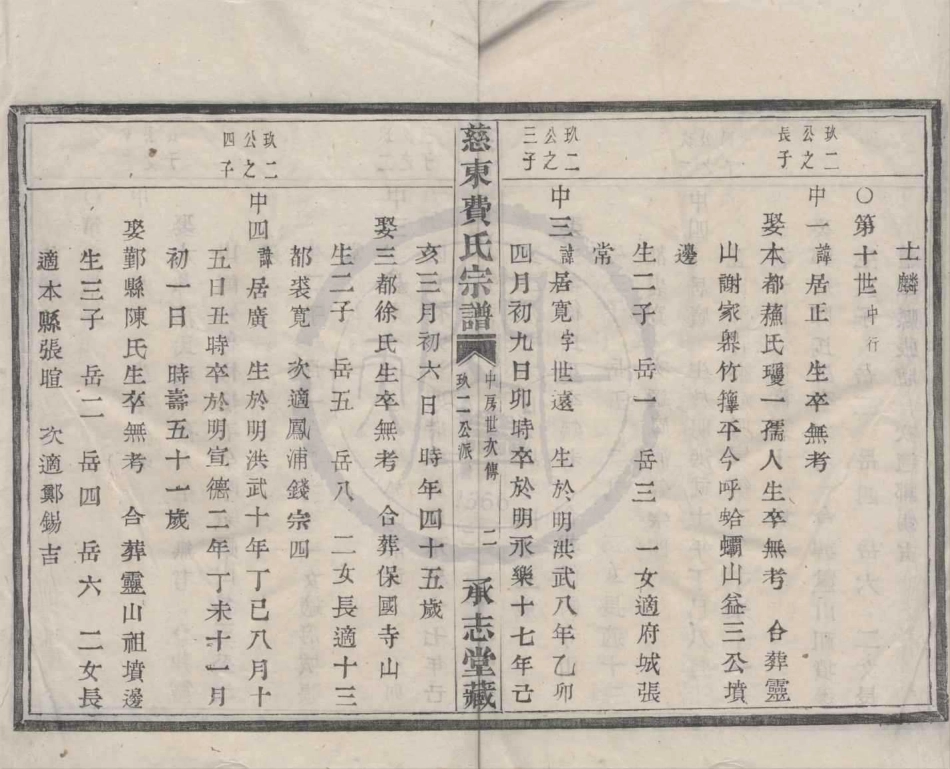 士麟
玖二公之長子
○第十世中行
中一諱居正 生卒無考
娶本都蘓氏璦一孺人生卒無考 合葬靈
山謝家墺竹籜平今呼蛤山益三公墳
邊
生二子 岳一 岳三 一女適府城張
常
玖二公之三子
中三諱居寬字世遠 生於明洪武八年乙卯
四月初九日卯時卒於明永樂十七年己
慈東費氏宗譜
中房世次傳
玖二公派
二
承志堂藏
亥三月初六日 時年四十五歲
娶三都徐氏生卒無考 合葬保國寺山
生二子 岳五 岳八 二女長適十三
都裘寬 次適鳳浦錢宗四
玖二公之四子
中四諱居廣 生於明洪武十年丁巳八月十
五日丑時卒於明宣德二年丁未十一月
初一日 時壽五十一歲
娶鄞縣陳氏生卒無考 合葬靈山祖墳邊
生三子 岳二 岳四 岳六 二女長
適本縣張暄 次適鄭錫吉